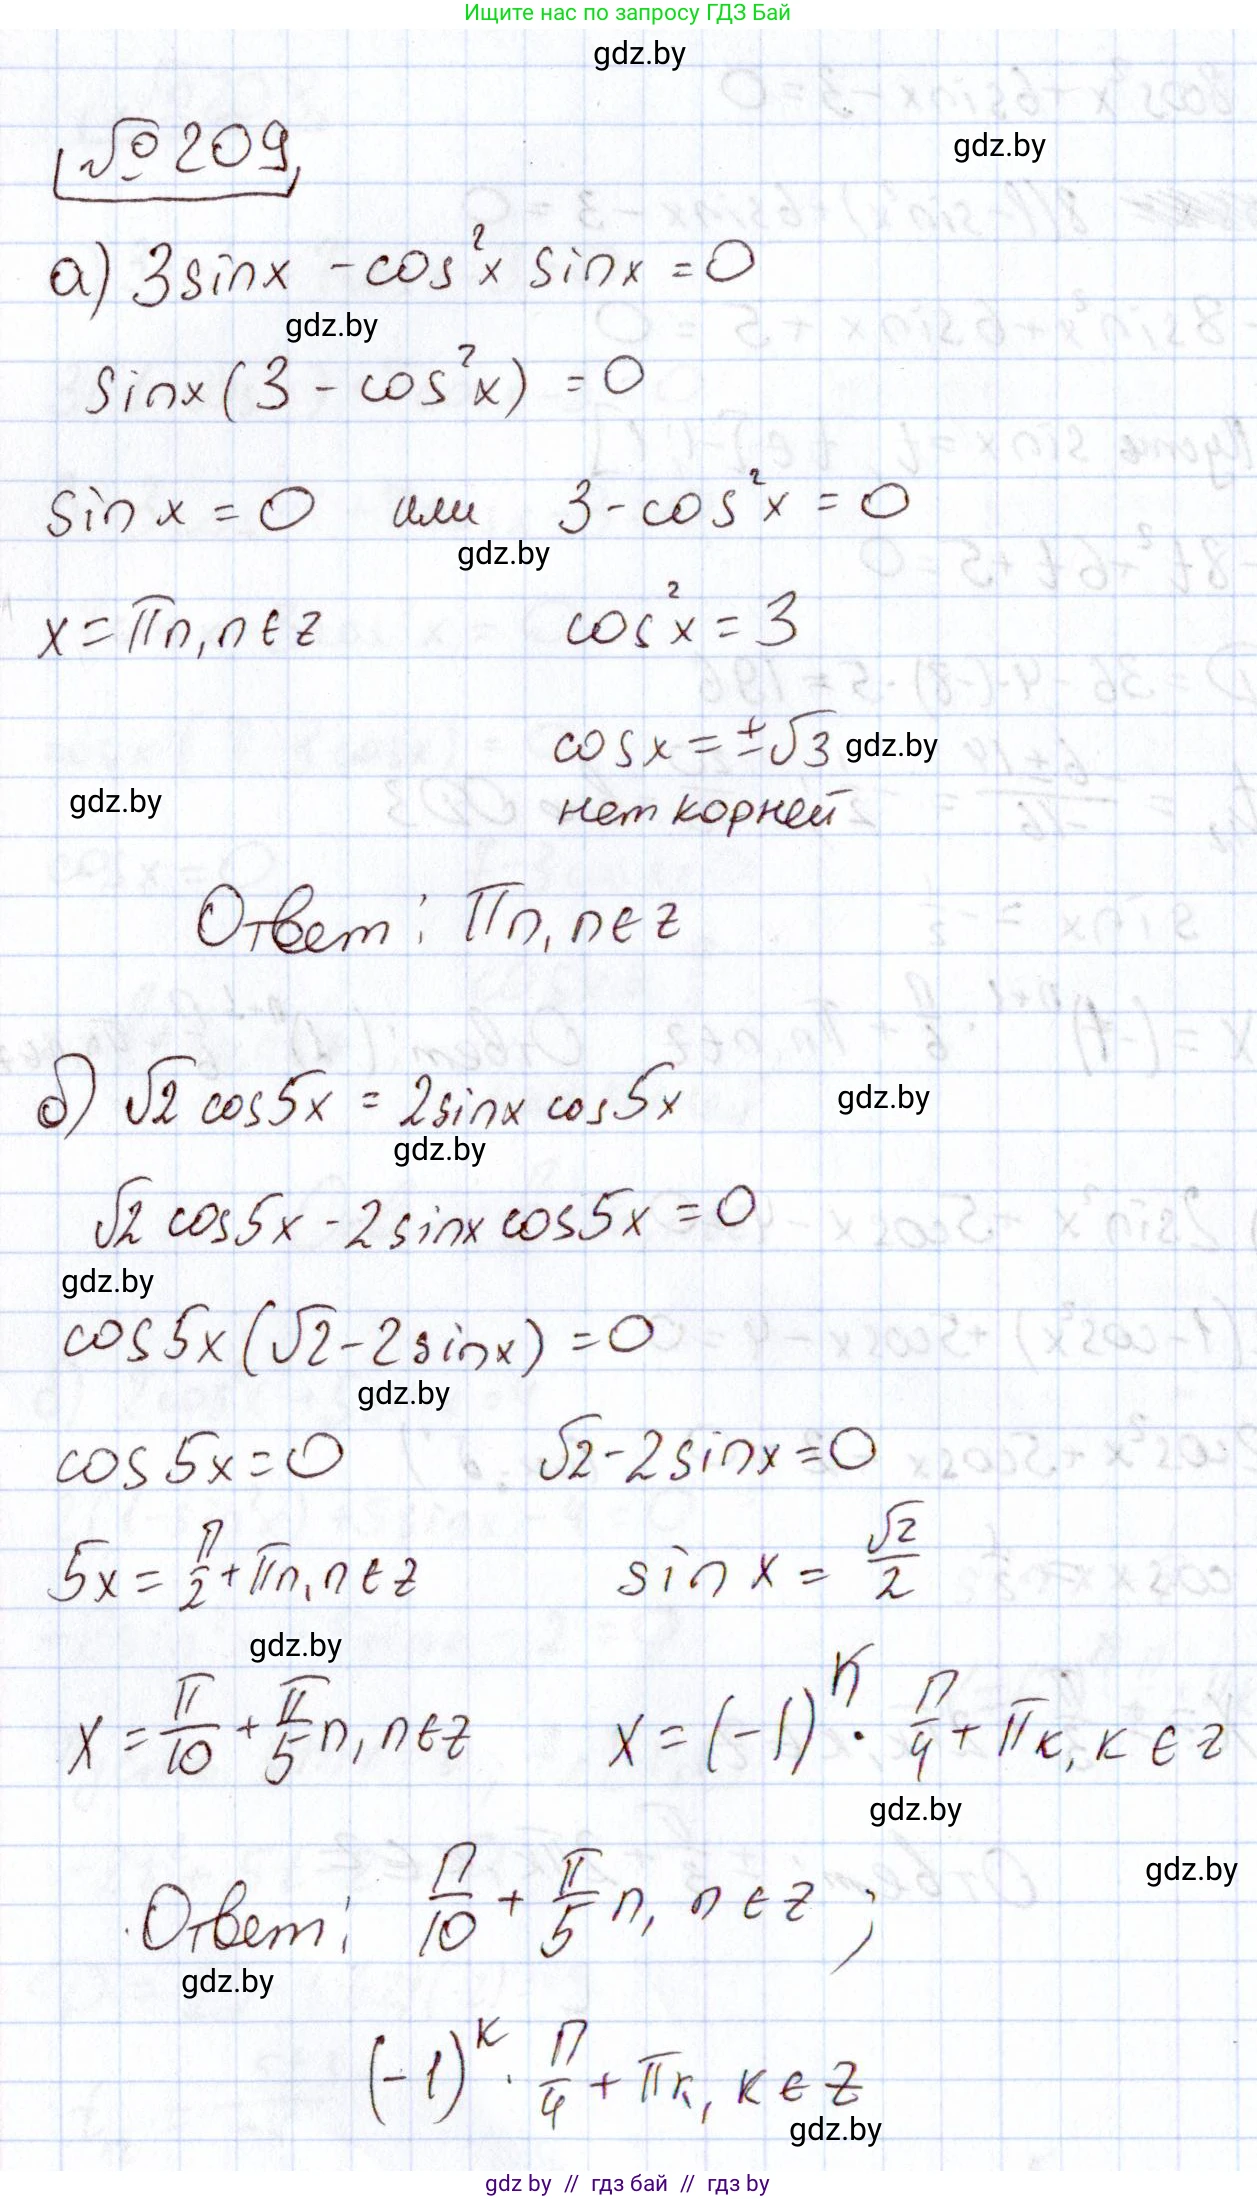 Ищите нас по запросу ГДЗ Бай
gdz.by
№ 209
gdz.by
а) 3sinx - cos²x sinx = 0
gdz.by
sinx(3 - cos²x) = 0
sin x = 0 или 3 - cos²x = 0
gdz.by
x = πn, n ∈ z cos²x = 3
cosx = ±√3 gdz.by
gdz.by нет корней
Ответ: πn, n ∈ z
б) √2 cos5x = 2sinx cos5x gdz.by
gdz.by
√2 cos5x - 2sinx cos5x = 0
gdz.by
cos5x(√2 - 2sinx) = 0
gdz.by
cos5x = 0 √2 - 2sinx = 0
5x = π/2 + πn, n ∈ z sin x = √2/2
gdz.by
x = π/10 + π/5 n, n ∈ z x = (-1)ᴷ · π/4 + πк, к ∈ z
gdz.by
gdz.by
Ответ: π/10 + π/5 n, n ∈ z;
gdz.by
(-1)ᴷ · π/4 + πк, к ∈ z
gdz.by
gdz by // гдз бай // гдз by